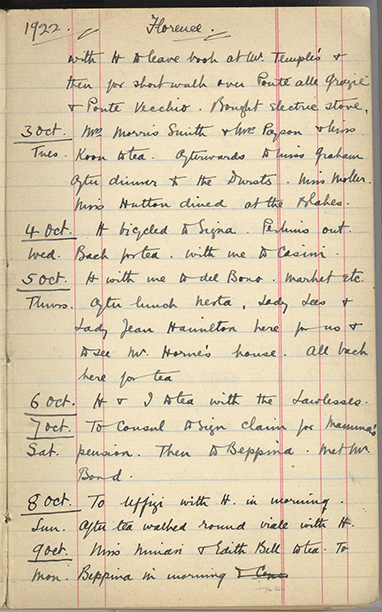 1922. Florence.
with H to leave book at Mr. Temple's &
then for short walk over Ponte alle Grazie
& Ponte Vecchio. Bought electric stove.
3 Oct. Mrs Morris Smith & Mrs Payson & Miss
Tues. Koon to tea. Afterwards to Miss Graham
After dinner to the Dursts. Miss Moller.
Miss Hutton dined at the Blakes.
4 Oct. H bicycled to Signa. Perkins out.
Wed. Back for tea. with me to Casini.
5 Oct. H with me to del Bono. Market etc.
Thurs. After lunch Nesta, Lady Lees &
Lady Jean Hamilton here for us &
to see Mr. Horne's house. All back
here for tea
6 Oct. H & I to tea with the Lawlesses.
7 Oct. To Consul to sign claim for Mamma's
Sat. pension. Then to Beppina. Met Mr
Bond.
8 Oct. To Uffizi with H. in morning.
Sun. After tea walked round viale with H.
9 Oct. Miss & Edith Bell to tea. To
Mon. Beppina in morning